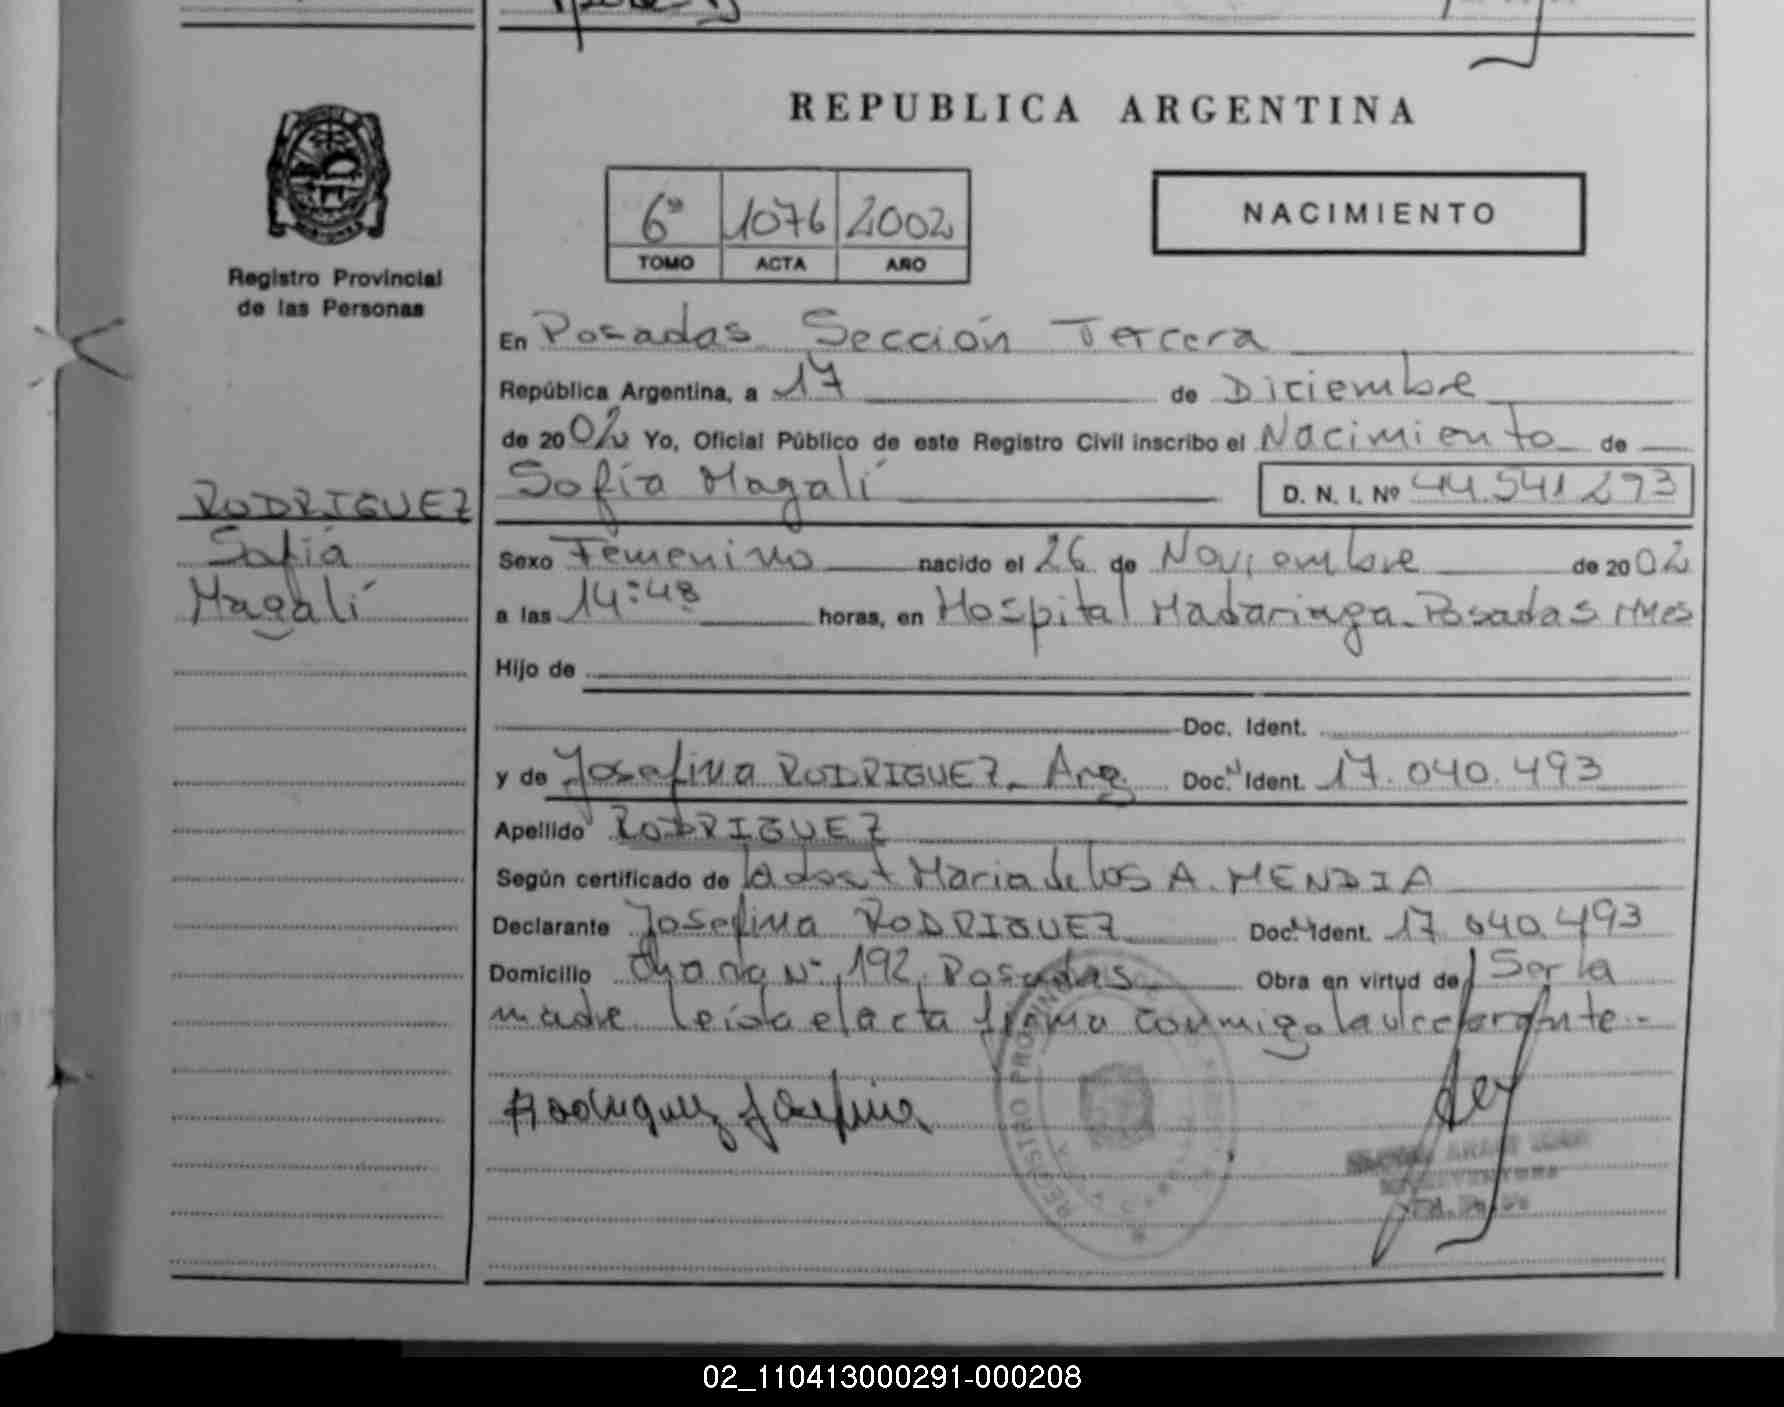 REPUBLICA ARGENTINA
6º 1076 2002
TOMO ACTA AÑO
NACIMIENTO
Registro Provincial
de las Personas
RODRIGUEZ
Sofía
Magalí
En Posadas Sección Tercera
República Argentina, a 17 de Diciembre
de 2002 Yo, Oficial Público de este Registro Civil inscribo el Nacimiento de
Sofía Magalí D. N. I. Nº 44.541.273
Sexo Femenino nacido el 26 de Noviembre de 2002
a las 14:48 horas, en Hospital Madariaga. Posadas Mnes
Hijo de
Doc. Ident.
y de Josefina RODRIGUEZ. Arg Doc. N Ident. 17.040.493
Apellido RODRIGUEZ
Según certificado de la obst Maria de los A. MENDIA
Declarante Josefina RODRIGUEZ Doc. N Ident. 17.040.493
Domicilio Chacra Nº 192, Posadas Obra en virtud de Ser la
madre leída el acta firma conmigo la declarante.-
Rodriguez Josefina
REGISTRO PROVIN
02_110413000291-000208